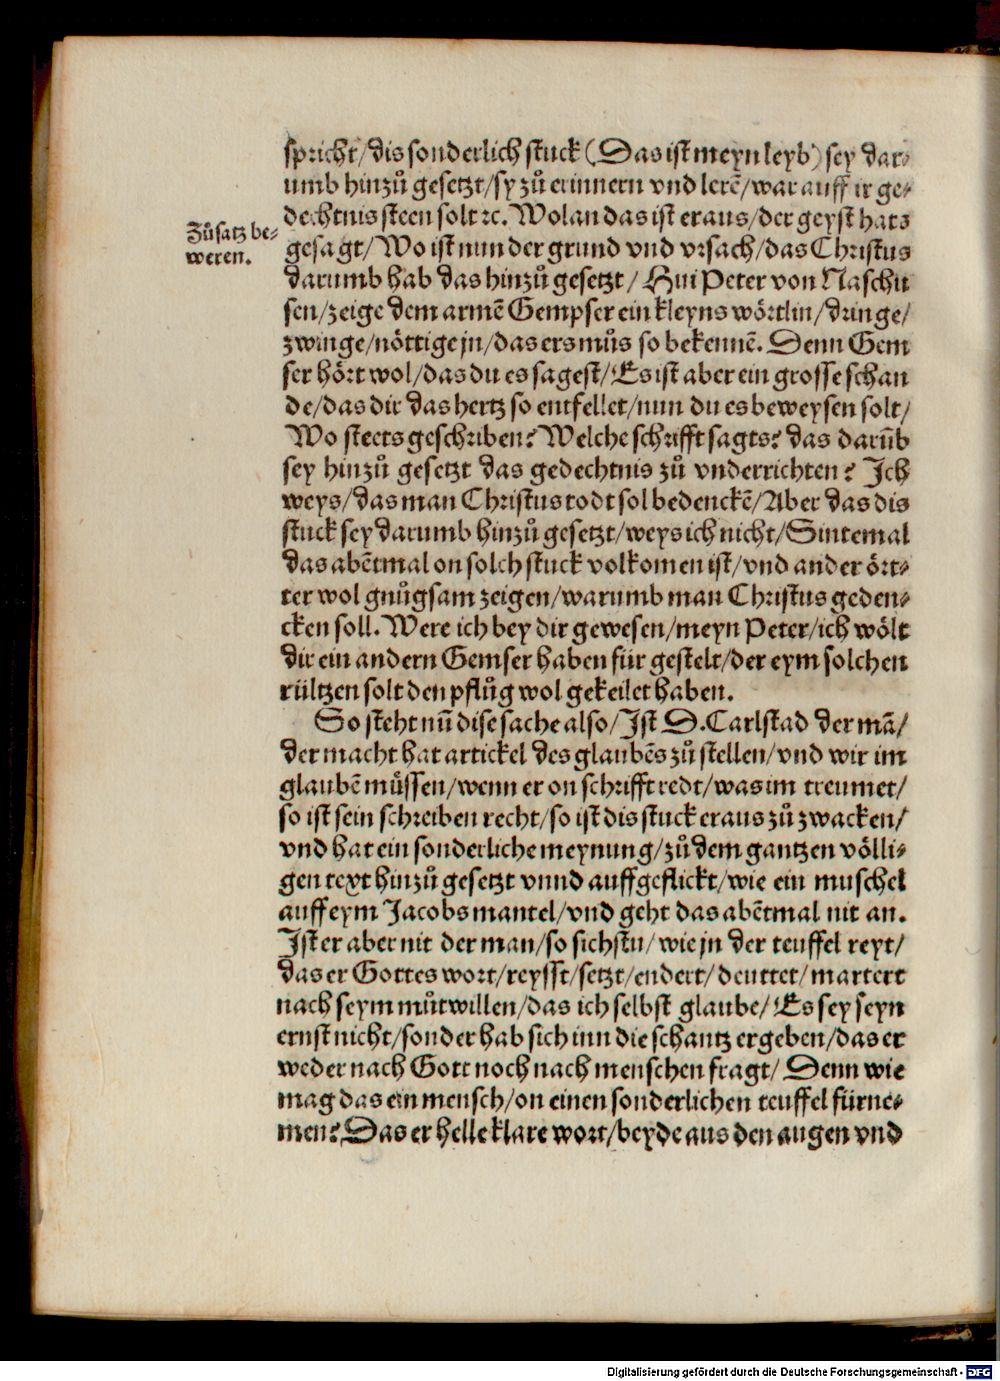 spricht/dis sonderlich stuck (Das ist meyn leyb) sey dar⸗
umb hinzů gesetzt/sy zů erinnern vnd lerẽ/war auff ir ge⸗
dechtnis steen solt ꝛc. Wolan das ist eraus/der geyst hats
Zůsatz be⸗
weren.
gesagt/Wo ist nun der grund vnd vrsach/das Christus
darumb hab das hinzů gesetzt/ Hui Peter von Naschu
sen/zeige dem armẽ Gempser ein kleyns wörtlin/dringe/
zwinge/nöttige jn/das ers můs so bekennẽ. Denn Gem
ser hört wol/das du es sagest/Es ist aber ein grosse schan
de/das dir das hertz so entfellet/nun du es beweysen solt/
Wo steets geschriben? Welche schrifft sagts? das darũb
sey hinzů gesetzt das gedechtnis zů vnderrichten? Ich
weys/das man Christus todt sol bedenckẽ/Aber das dis
stuck sey darumb hinzů gesetzt/weys ich nicht/Sintemal
das abẽtmal on solch stuck volkomen ist/vnd ander ört⸗
ter wol gnůgsam zeigen/warumb man Christus geden⸗
cken soll. Were ich bey dir gewesen/meyn Peter/ich wölt
dir ein andern Gemser haben für gestelt/der eym solchen
rültzen solt den pflůg wol gekeilet haben.
So steht nũ dise sache also/Ist D. Carlstad der mã/
der macht hat artickel des glaubẽs zů stellen/vnd wir im
glaubẽ müssen/wenn er on schrifft redt/was im treumet/
so ist sein schreiben recht/so ist dis stuck eraus zů zwacken/
vnd hat ein sonderliche meynung/zů dem gantzen völli⸗
gen text hinzů gesetzt vnnd auffgeflickt/wie ein muschel
auff eym Jacobs mantel/vnd geht das abẽtmal nit an.
Ist er aber nit der man/so sichstu/wie jn der teuffel reyt/
das er Gottes wort/reysst/setzt/endert/deuttet/martert
nach seym můtwillen/das ich selbst glaube/Es sey seyn
ernst nicht/sonder hab sich inn die schantz ergeben/das er
weder nach Gott noch nach menschen fragt/ Denn wie
mag das ein mensch/on einen sonderlichen teuffel fürne⸗
men? Das er helle klare wort/beyde aus den augen vnd
Digitalisierung gefördert durch die Deutsche Forschungsgemeinschaft - DFG